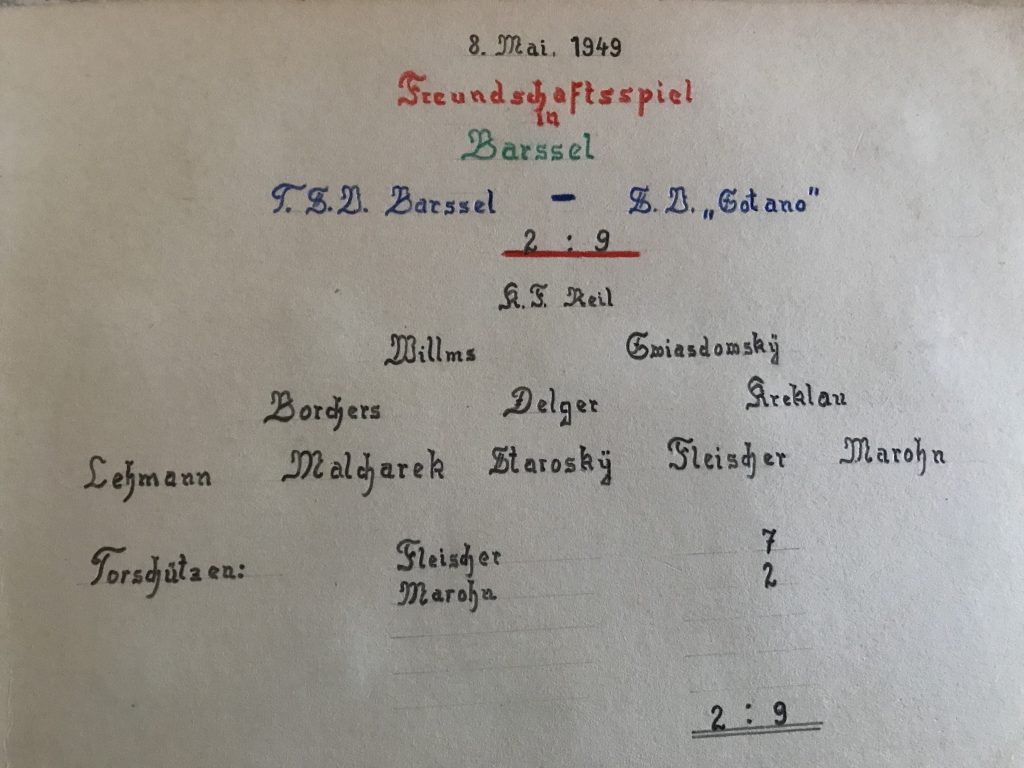 8. Mai. 1949
Freundschaftsspiel
in
Barssel
T. S. V. Barssel – S. V. „Gotano"
2 : 9
K. F. Reil
Willms Gwiasdowskÿ
Borchers Delger Kreklau
Lehmann Malcharek Staroskÿ Fleischer Marohn
Torschützen: Fleischer 7
Marohn 2
2 : 9